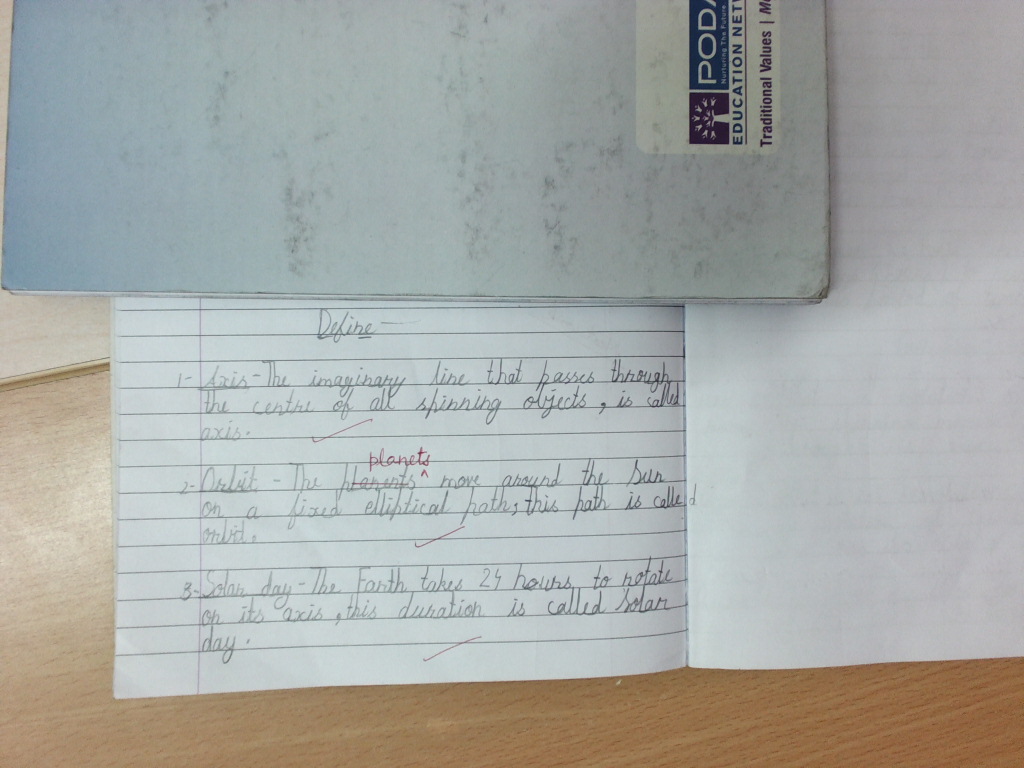 PODA
Nurturing The Future
EDUCATION NETW
Traditional Values | M
Define -
1- Axis - The imaginary line that passes through
the centre of all spinning objects, is called
axis.
planets
2- Orbit - The planents move around the Sun
on a fixed elliptical path, this path is called
orbit.
3- Solar day - The Earth takes 24 hours to rotate
on its axis, this duration is called Solar
day.